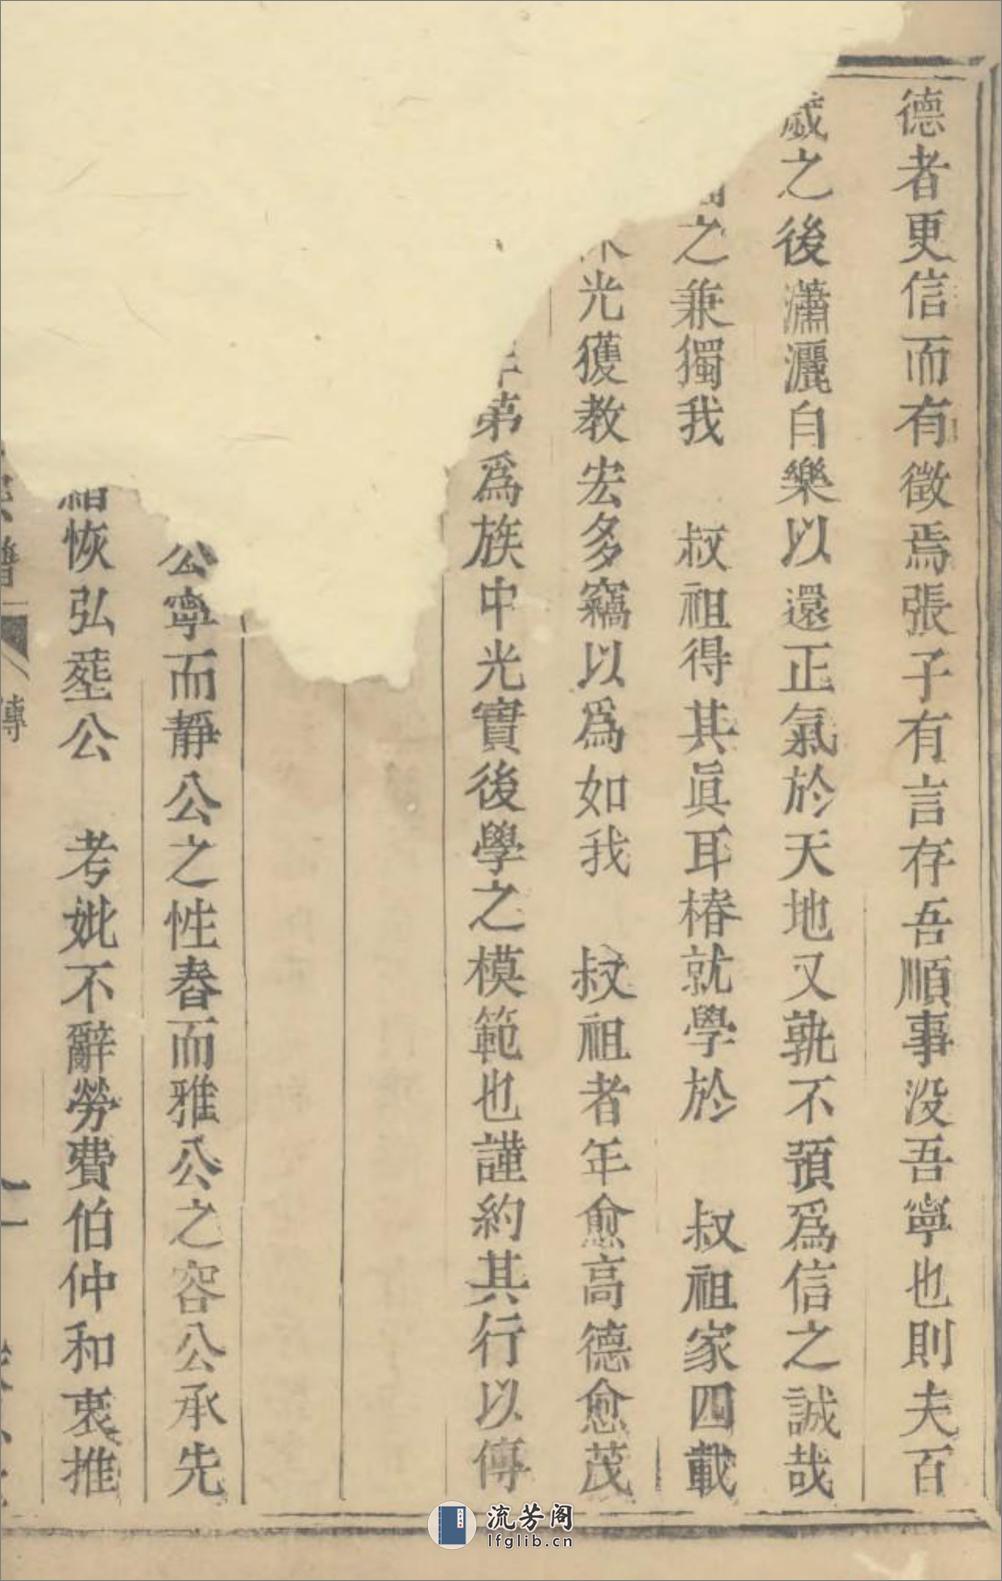 德者更信而有徵焉張子有言存吾順事没吾寧也則夫百
歲之後瀟灑自樂以還正氣於天地又孰不預爲信之誠哉
之兼獨我 叔祖得其眞耳椿就學於 叔祖家四載
光獲教宏多竊以爲如我 叔祖者年愈高德愈茂
弟爲族中光實後學之模範也謹約其行以傳
公寧而靜公之性春而雅公之容公承先
緒恢弘塟公 考妣不辭勞費伯仲和衷推
譜
傳
流芳阁
lfglib.cn